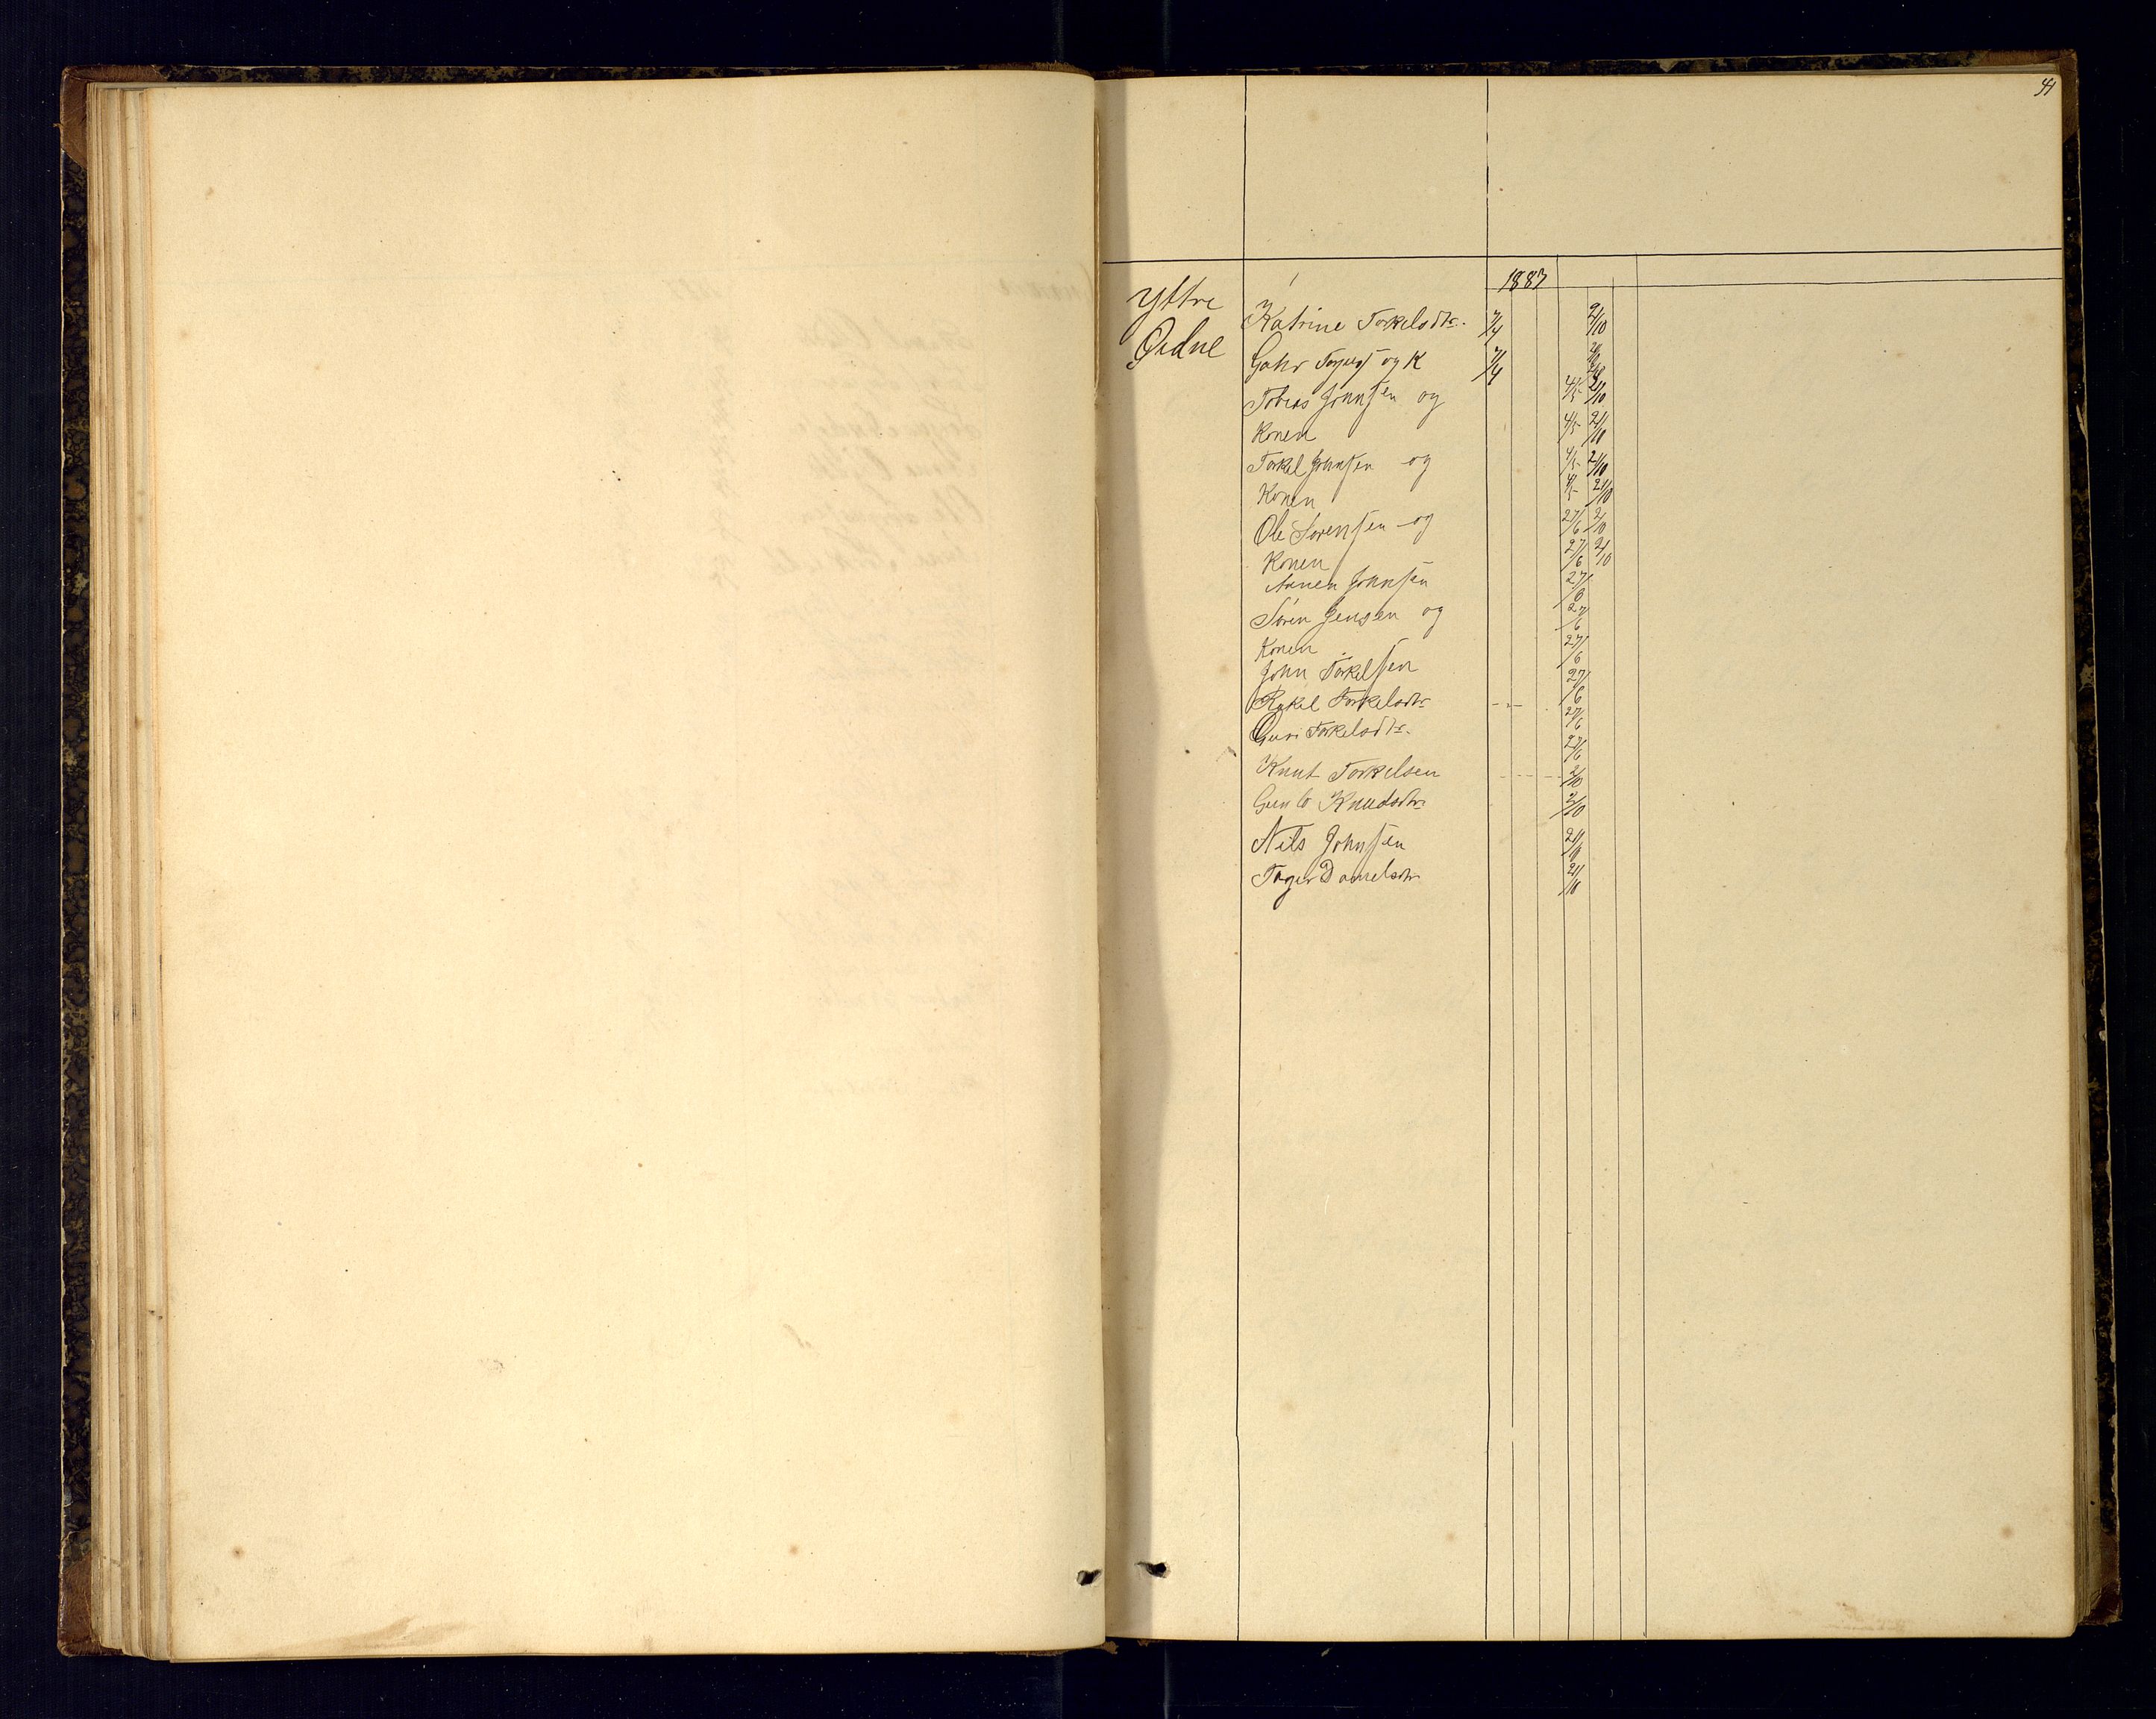 41
1887
Yttre
Øidne
Katrine Torkelsdtr. 7/4 2/10
og K 7/4
Tobias Johnsen og 4/5 2/10
Konen 4/5 21/10
Torkel Johnsen og 4/5 21/10
Konen 4/5 21/10
Ole Sørensen og 27/6 2/10
Konen 27/6 2/10
Johnsen 27/6
Søren Jensen og 27/6
Konen 27/6
John Torkelsen 27/6
Rakel Torkelsdtr 27/6
Guri Torkelsdtr. 27/6
Knut Torkelsen 2/10
Knudsdtr 2/10
Nils Johnsen 21/10
Danielsdtr 21/10